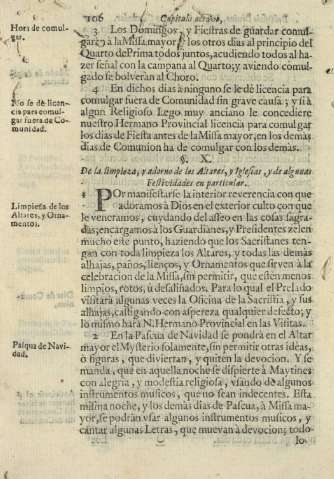 106
Capitulo
Hora de comul-
gar.
3. Los Domingos, y Fiestas de guardar comul-
garàn à la Missa mayor; los otros dias al principio del
Quarto de Prima todos juntos, acudiendo todos al ha-
zer señal con la campana al Quarto; y aviendo comul-
gado se bolveràn al Choro.
No se dè licen-
cia para comul-
gar fuera de Co-
munidad.
4 En dichos dias à ninguno se le dè licencia para
comulgar fuera de Comunidad sin grave causa; y si à
algun Religioso Lego muy anciano le concediere
nuestro Hermano Provincial licencia para comulgar
los dias de Fiesta antes de la Missa mayor, en los demàs
dias de Comunion ha de comulgar con los demàs.
§. X.
De la limpieza, y adorno de los Altares, y Iglesias, y de algunas
Festividades en particular.
Limpieza de los
Altares, y Orna-
mentos.
1 POr manifestarse la interior reverencia con que
adoramos à Dios en el exterior culto con que
le veneramos, cuydando del asseo en las cosas sagra-
das; encargamos à los Guardianes, y Presidentes zelen
mucho este punto, haziendo que los Sacristanes ten-
gan con toda limpieza los Altares, y todas las demàs
alhajas, paños, lienços, y Ornamentos que sirven à la
celebracion de la Missa, sin permitir, que estèn menos
limpios, rotos, ù desaliñados. Para lo qual el Prelado
visitarà algunas veces la Oficina de la Sacristia, y sus
alhajas, castigando con aspereza qualquier defecto; y
lo mismo harà N. Hermano Provincial en las Visitas.
Pasqua de Navi-
dad.
2 En la Pascua de Navidad se pondrà en el Altar
mayor el Mysterio solamente, sin permitir otras ideas,
ò figuras, que diviertan, y quiten la devocion. Y se
manda, que en aquella noche se dispierte à Maytines
con alegria, y modestia religiosa, vsando de algunos
instrumentos musicos, que no sean indecentes. Esta
misma noche, y los demàs dias de Pascua, à Missa ma-
yor, se podràn vsar algunos instrumentos musicos, y
cantar algunas Letras, que muevan à devocion; todo
lo